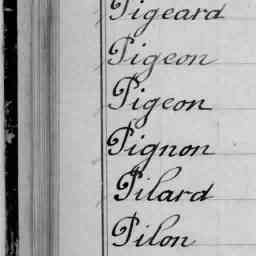 Pigeard
Pigeon
Pigeon
Pignon
Pilard
Pilon